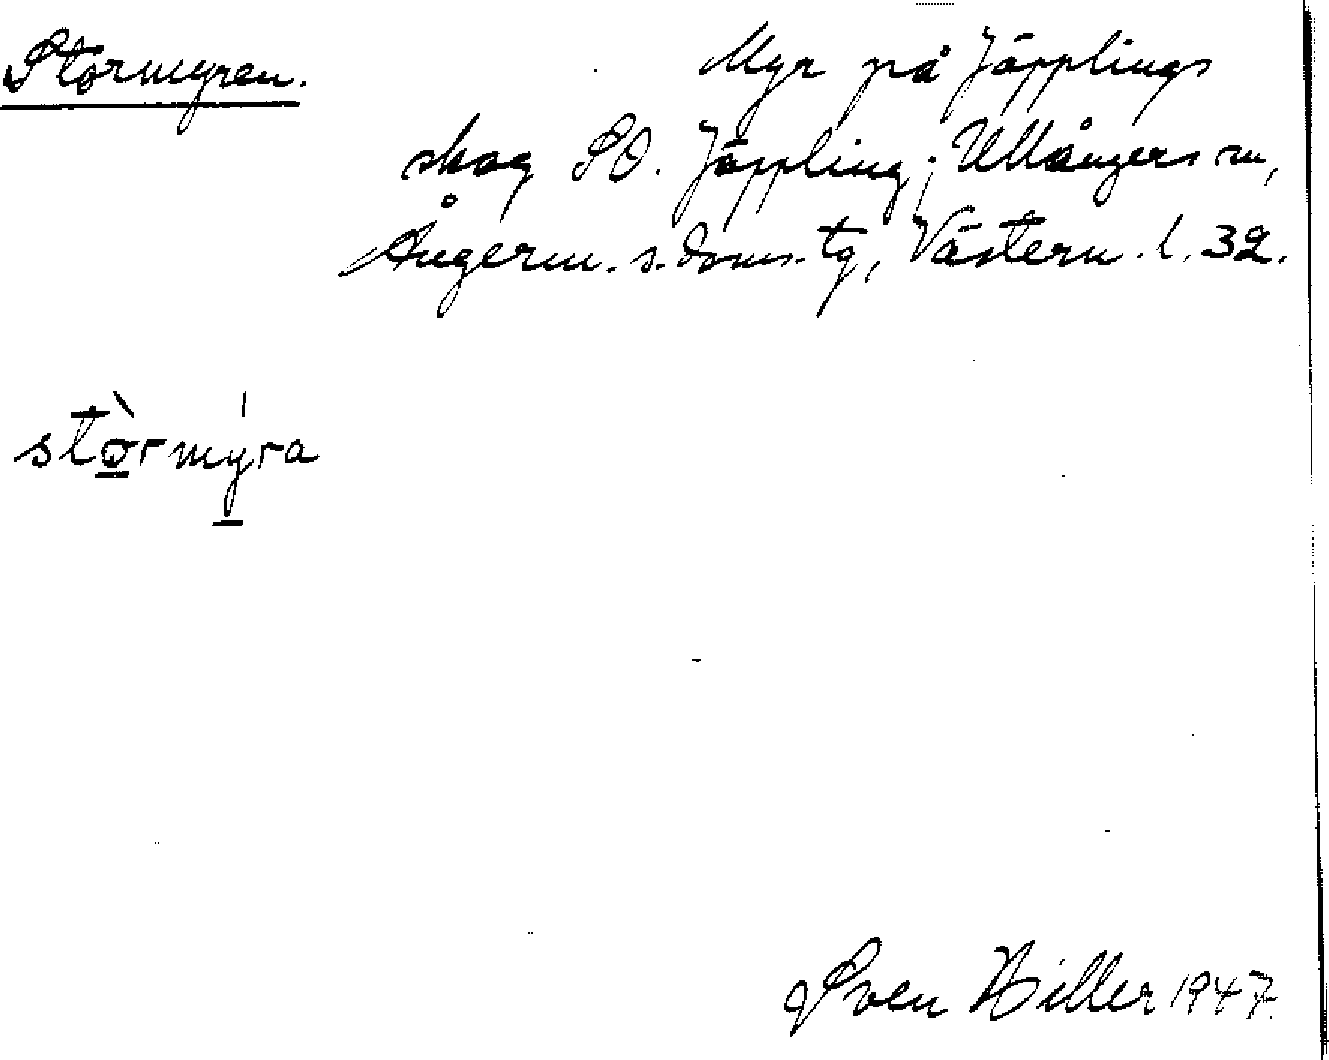 Stormyren. Myr på Jäpplings
skog SO. Jäppling; Ullångers sn,
Ångerm. s. doms. tg, Västern. l. 32.
stòrmýra
Sven Hiller 1947.